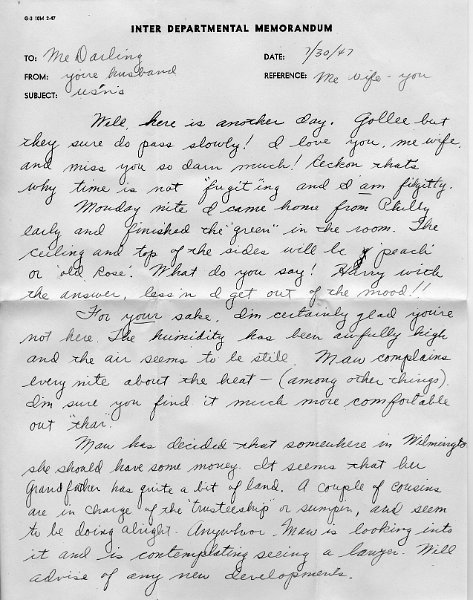 G-3 10M 2-47
INTER DEPARTMENTAL MEMORANDUM
TO: Me Darling
DATE: 7/30/47
FROM: youre husband
REFERENCE: Me wife - you
SUBJECT: us'n's
Well, here is another day. Gollee but
they sure do pass slowly! I love you, me wife,
and miss you so darn much! Reckon thats
why time is not "fugit"ing and I am figitly.
Monday nite I came home from Philly
early and finished the "green" in the room. The
ceiling and top of the sides will be "peach"
or "old rose". What do you say! Harry with
the answer, less'n I get out of the mood!!
For your sake, I'm certainly glad you're
not here. The humidity has been awfully high
and the air seems to be still. Maw complains
every nite about the heat - (among other things).
I'm sure you find it much more comfortable
out "thar".
Maw has decided that somewhere in Wilmington
she should have some money. It seems that her
Grandfather has quite a bit of land. A couple of cousins
are in charge of the "trusteeship" or sumpin, and seem
to be doing alright. Anywhoo. Maw is looking into
it and is contemplating seeing a lawyer. Will
advise of any new developments.